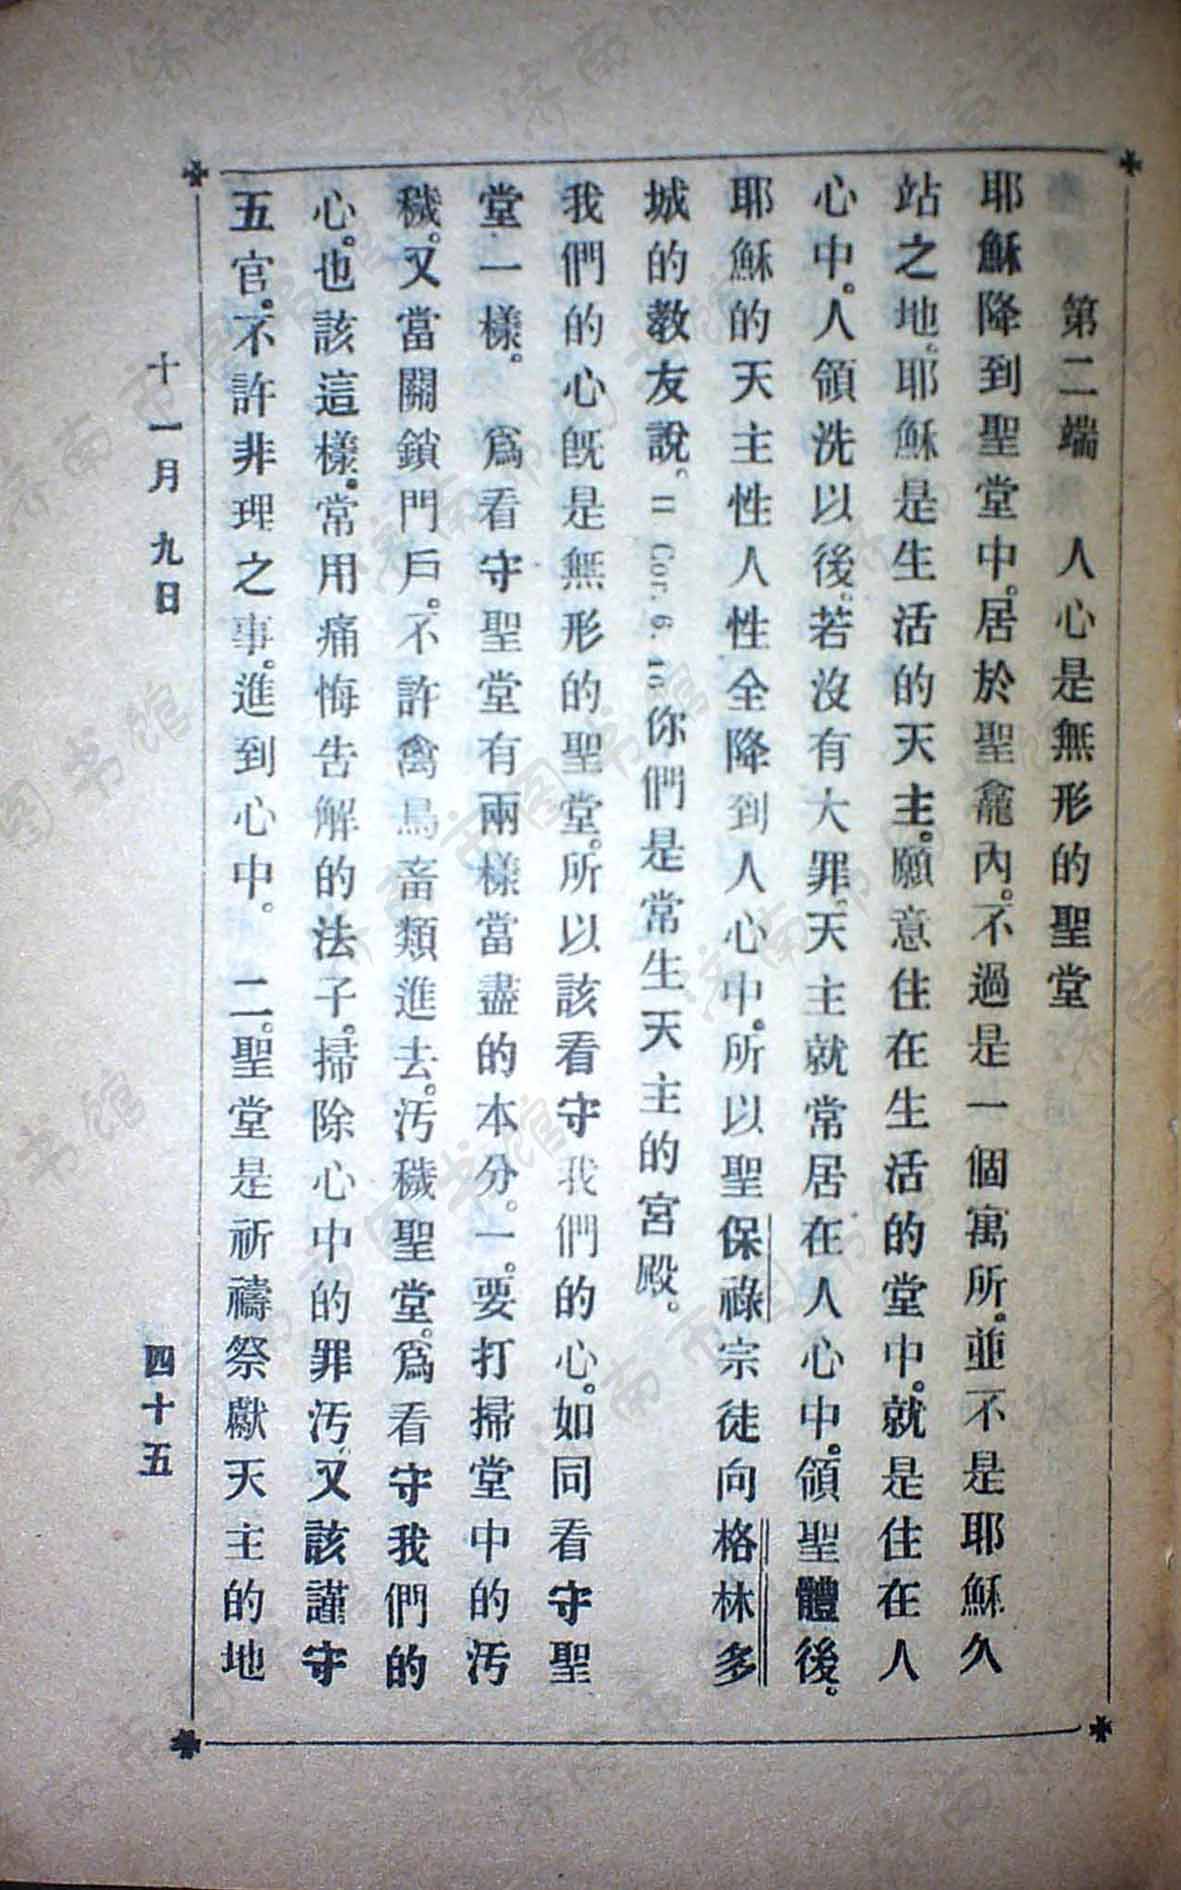 第二端　人心是無形的聖堂
耶穌降到聖堂中。居於聖龕內。不過是一個寓所。並不是耶穌久
站之地。耶穌是生活的天主。願意住在生活的堂中。就是住在人
心中。人領洗以後。若沒有大罪。天主就常居在人心中。領聖體後。
耶穌的天主性人性全降到人心中。所以聖保祿宗徒向格林多
城的教友說。II Cor. 6. 16. 你們是常生天主的宮殿。
我們的心旣是無形的聖堂。所以該看守我們的心。如同看守聖
堂一樣。　爲看守聖堂有兩樣當盡的本分。一。要打掃堂中的汚
穢。又當關鎖門戶。不許禽鳥畜類進去。汚穢聖堂。爲看守我們的
心。也該這樣。常用痛悔告解的法子。掃除心中的罪汚。又該謹守
五官。不許非理之事。進到心中。　二。聖堂是祈禱祭獻天主的地
十一月九日
四十五
济南市图书馆